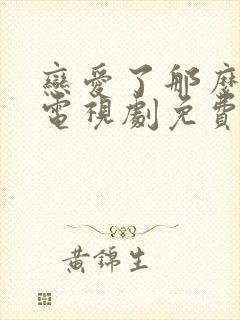 戀愛了那麼
電視劇免費
黃錦生